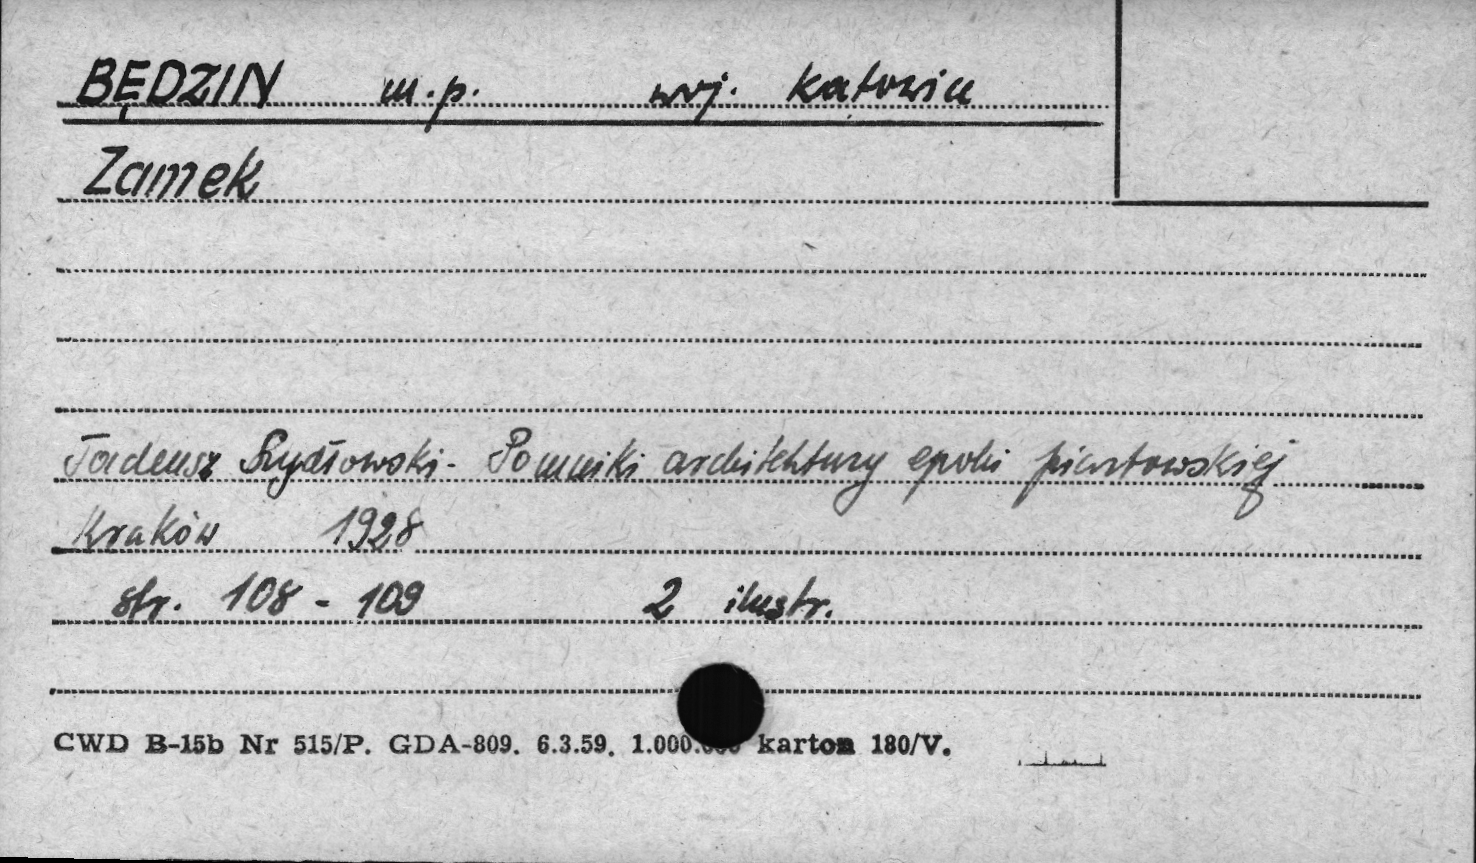 BĘDZIN m.p. woj. Katowice
Zamek
Tadeusz Szydłowski - Pomniki architektury epoki piastowskiej
Kraków 1928
str. 108 - 109 2 ilustr.
CWD B-15b Nr 515/P. GDA-809. 6.3.59. 1.000.000 karton 180/V.